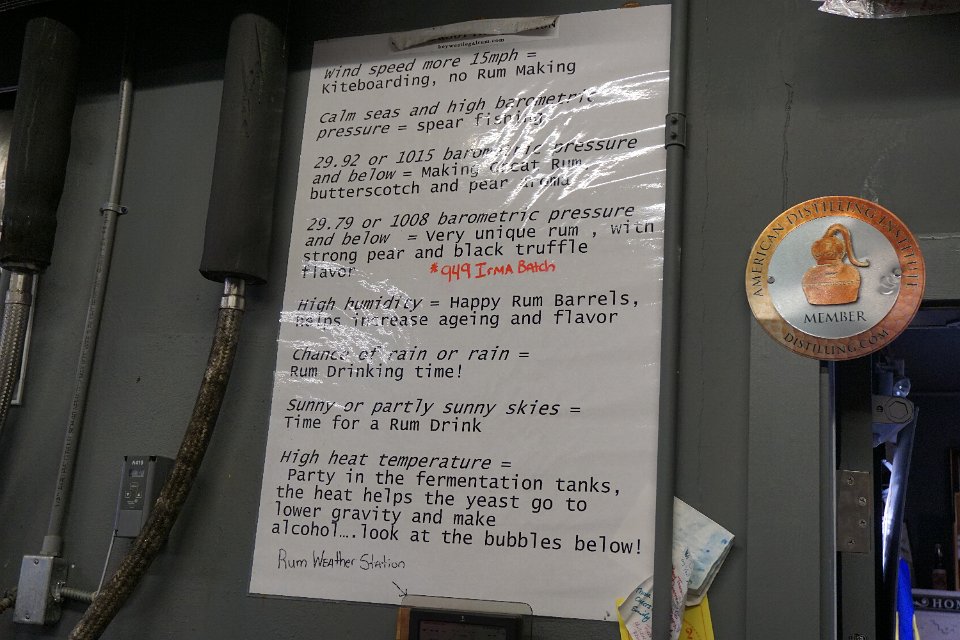 keywestlegalrum.com
Wind speed more 15mph =
Kiteboarding, no Rum Making
Calm seas and high barometric
pressure = spear fishing
29.92 or 1015 barometric pressure
and below = Making Great Rum
butterscotch and pear aroma
29.79 or 1008 barometric pressure
and below = Very unique rum , with
strong pear and black truffle
flavor
*949 IrMA Batch
High humidity = Happy Rum Barrels,
helps increase ageing and flavor
Chance of rain or rain =
Rum Drinking time!
Sunny or partly sunny skies =
Time for a Rum Drink
High heat temperature =
Party in the fermentation tanks,
the heat helps the yeast go to
lower gravity and make
alcohol….look at the bubbles below!
Rum WEAther Station
AMERICAN DISTILLING INSTITUTE
MEMBER
DISTILLING.COM
A419
HOM